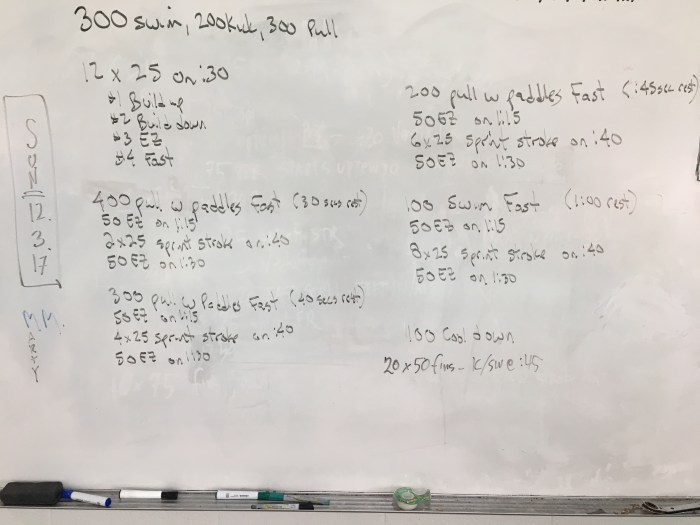 300 Swim, 200 Kick, 300 Pull
12 x 25 on :30
#1 Build up
#2 Build down
#3 EZ
#4 Fast
400 pull w paddles Fast (30 secs rest)
50 EZ on 1:15
2x25 sprint stroke on :40
50 EZ on 1:30
300 pull w Paddles Fast (40 secs rest)
50 EZ on 1:15
4x25 sprint stroke on :40
50 EZ on 1:30
200 pull w paddles Fast (:45 sec rest)
50 EZ on 1:15
6x25 Sprint stroke on :40
50 EZ on 1:30
100 Swim Fast (1:00 rest)
50 EZ on 1:15
8x25 Sprint Stroke on :40
50 EZ on 1:30
100 Cool down
20x50 fins - K/sw @ :45
SUN
12.
3.
17
M.M.